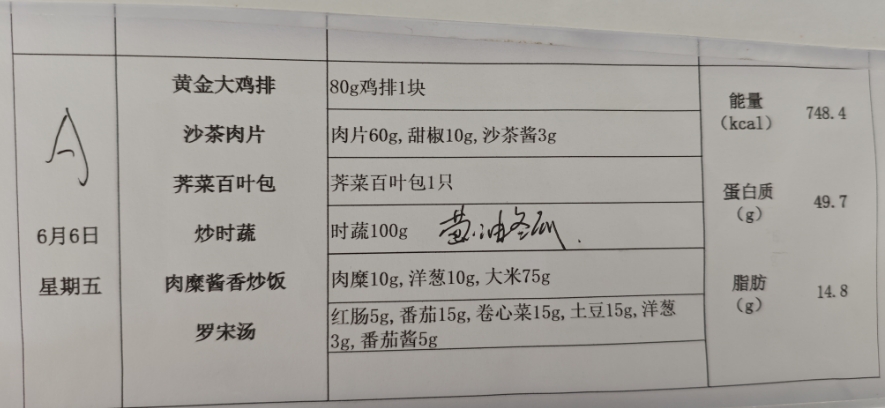 黄金大鸡排 80g鸡排1块
A 沙茶肉片 肉片60g,甜椒10g,沙茶酱3g
能量(kcal) 748.4
荠菜百叶包 荠菜百叶包1只
蛋白质(g) 49.7
6月6日 炒时蔬 时蔬100g 黄油冬瓜.
星期五 肉糜酱香炒饭 肉糜10g,洋葱10g,大米75g
脂肪(g) 14.8
罗宋汤 红肠5g,番茄15g,卷心菜15g,土豆15g,洋葱
3g,番茄酱5g